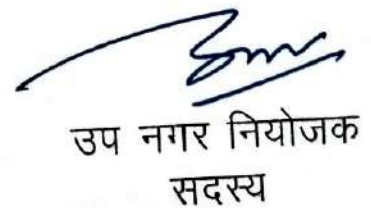 उप नगर नियोजक
सदस्य